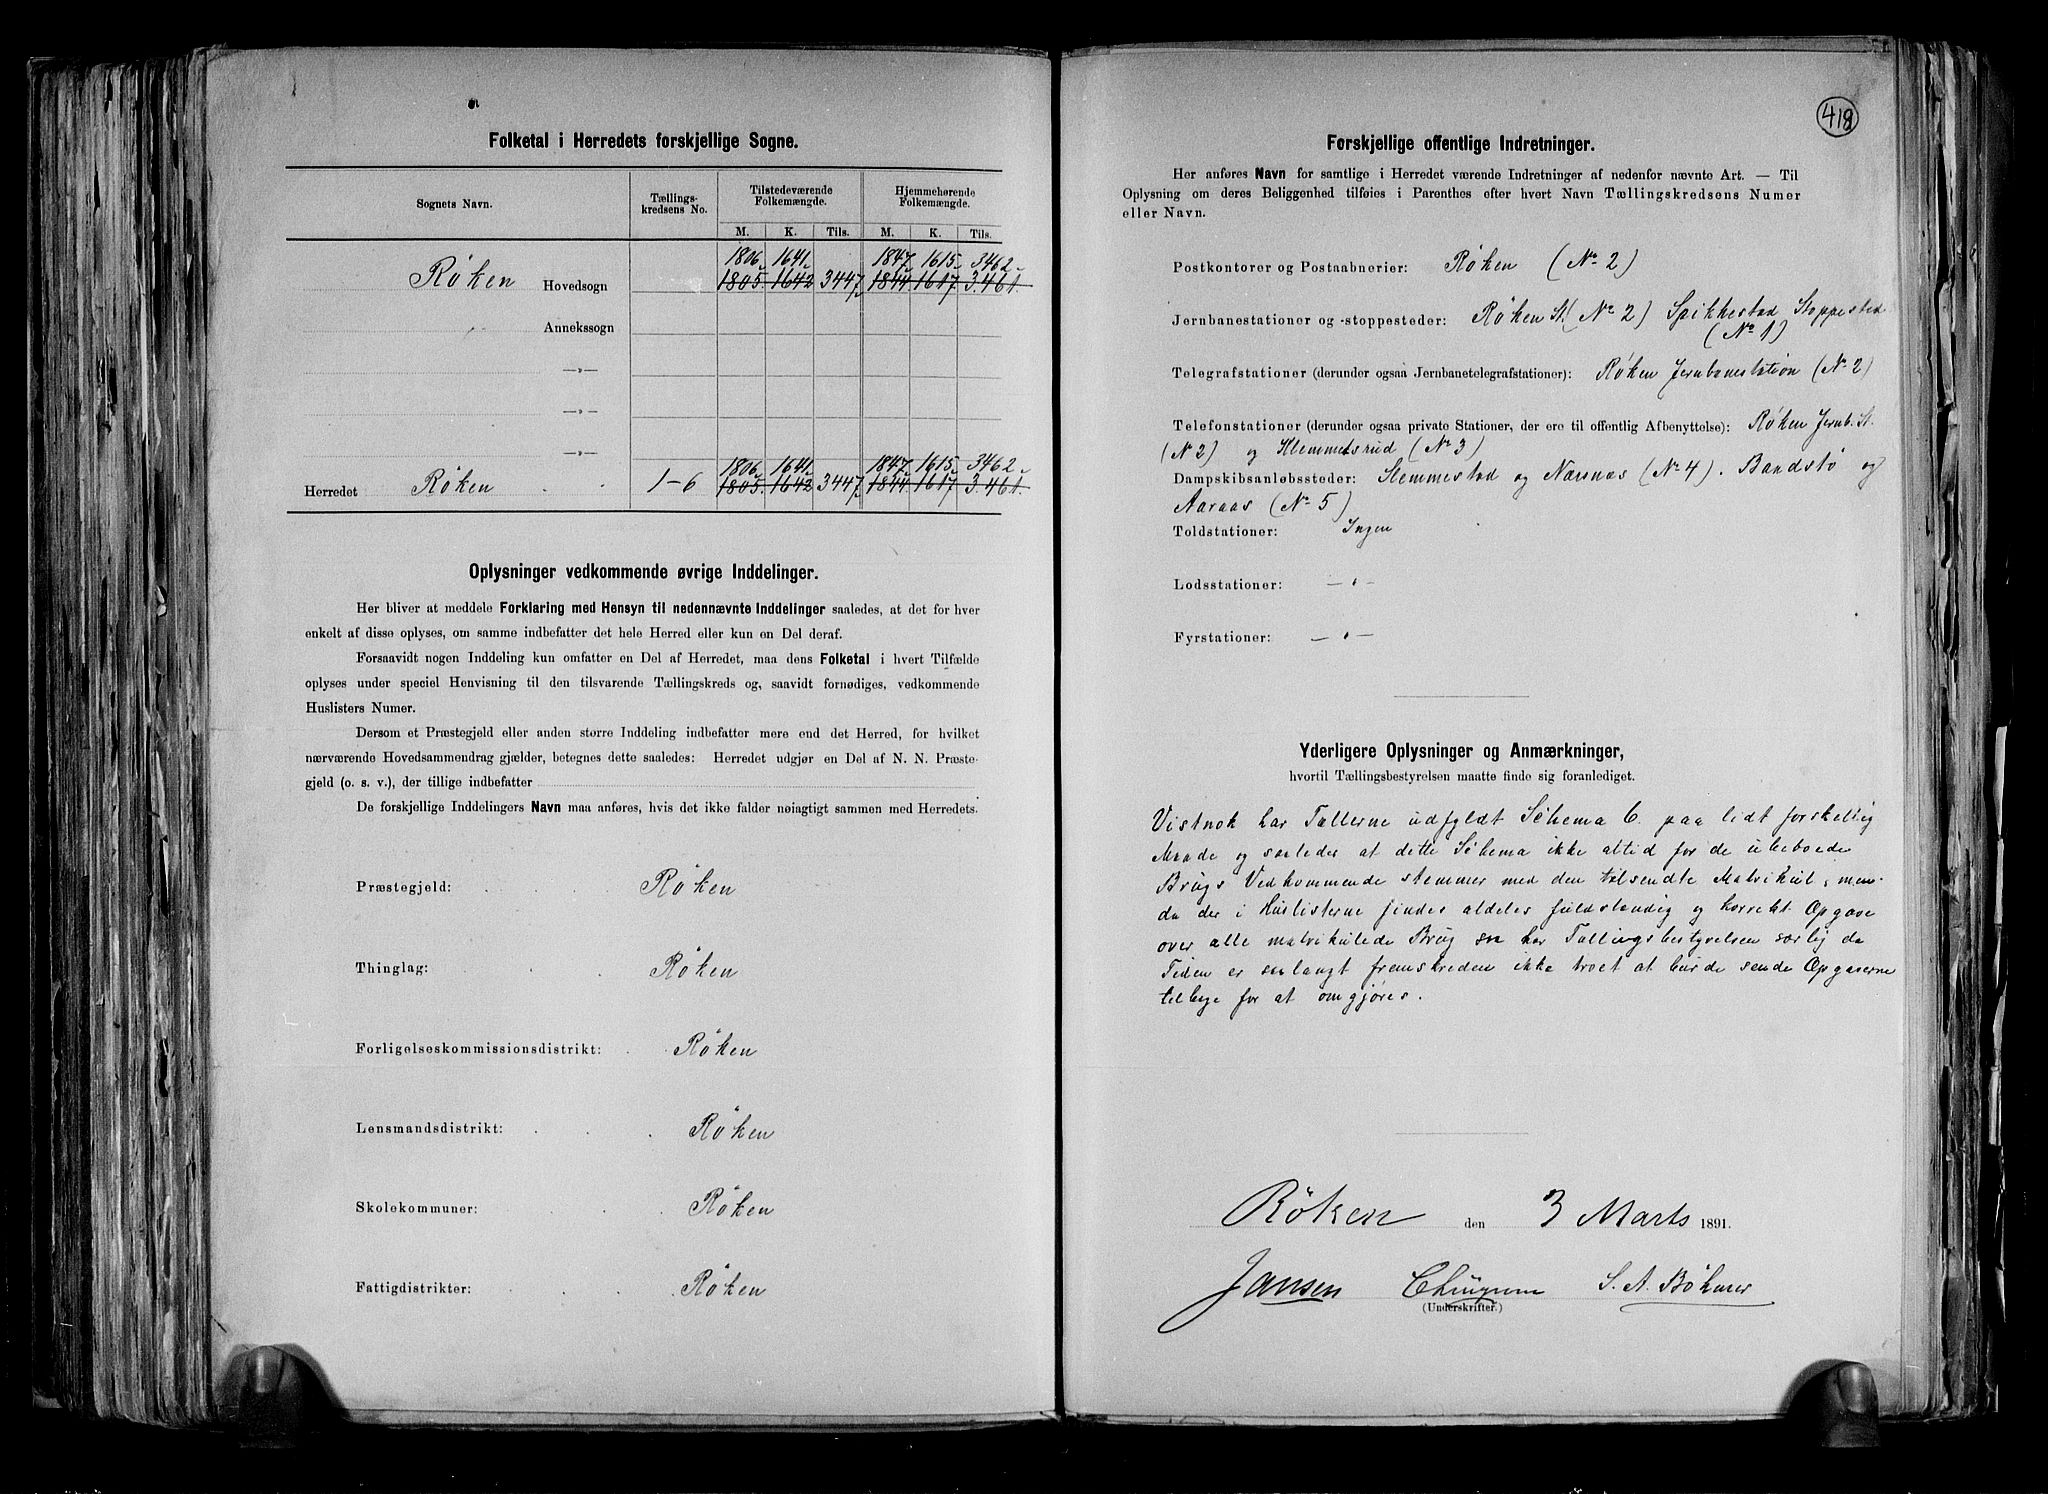 Folketal i Herredets forskjellige Sogne.
Sognets Navn. Tællings-kredsens No. Tilstedeværende Folkemængde. Hjemmehørende Folkemængde.
M. K. Tils. M. K. Tils.
1806 1641 1847 1615 3462
Røken Hovedsogn 1805 1642 3447 1844 1617 3.461.
Annekssogn
—»—
—»—
—»—
1806 1641 1847 1615 3462
Herredet Røken 1-6 1805 1642 3447 1844 1617 3.461.
Oplysninger vedkommende øvrige Inddelinger.
Her bliver at meddele Forklaring med Hensyn til nedennævnte Inddelinger saaledes, at det for hver
enkelt af disse oplyses, om samme indbefatter det hele Herred eller kun en Del deraf.
Forsaavidt nogen Inddeling kun omfatter en Del af Herredet, maa dens Folketal i hvert Tilfælde
oplyses under speciel Henvisning til den tilsvarende Tællingskreds og, saavidt fornødiges, vedkommende
Huslisters Numer.
Dersom et Præstegjeld eller anden større Inddeling indbefatter mere end det Herred, for hvilket
nærværende Hovedsammendrag gjælder, betegnes dette saaledes: Herredet udgjør en Del af N. N. Præste-
gjeld (o. s. v.), der tillige indbefatter
De forskjellige Inddelingers Navn maa anføres, hvis det ikke falder nøiagtigt sammen med Herredets.
Præstegjeld: Røken
Thinglag: Røken
Forligelseskommissionsdistrikt: Røken
Lensmandsdistrikt: Røken
Skolekommuner: Røken
Fattigdistrikter: Røken
418
Forskjellige offentlige Indretninger.
Her anføres Navn for samtlige i Herredet værende Indretninger af nedenfor nævnte Art. — Til
Oplysning om deres Beliggenhed tilføies i Parenthes efter hvert Navn Tællingskredsens Numer
eller Navn.
Postkontorer og Postaabnerier: Røken (No 2)
Jernbanestationer og -stoppesteder: Røken St. (No 2) Spikkestad Stoppested
(No 1)
Telegrafstationer (derunder ogsaa Jernbanetelegrafstationer): Røken Jernbanestation (No 2)
Telefonstationer (derunder ogsaa private Stationer, der ere til offentlig Afbenyttelse): Røken Jernb. St.
(No 2) og Klemmetsrud (No 3)
Dampskibsanløbssteder: Slemmestad og Nærsnæs (No 4). Baadstø og
Aaraas (No 5)
Toldstationer: Ingen
Lodsstationer: — " —
Fyrstationer: — " —
Yderligere Oplysninger og Anmærkninger,
hvortil Tællingsbestyrelsen maatte finde sig foranlediget.
Vistnok har Tællerne udfyldt Schema C. paa lidt forskellig
Maade og saaledes at dette Schema ikke altid for de ubeboede
Brugs Vedkommende stemmer med den tilsendte Matrikul, men
da der i Huslisterne findes aldeles fuldstændig og korrekt Opgave
over alle matrikulede Brug saa har Tællingsbestyrelsen særlig da
Tiden er saalangt fremskreden ikke troet at burde sende Opgaverne
tilbage for at omgjøres.
Røken den 3 Marts 1891.
Jansen S. A. Böhmer
(Underskrifter.)